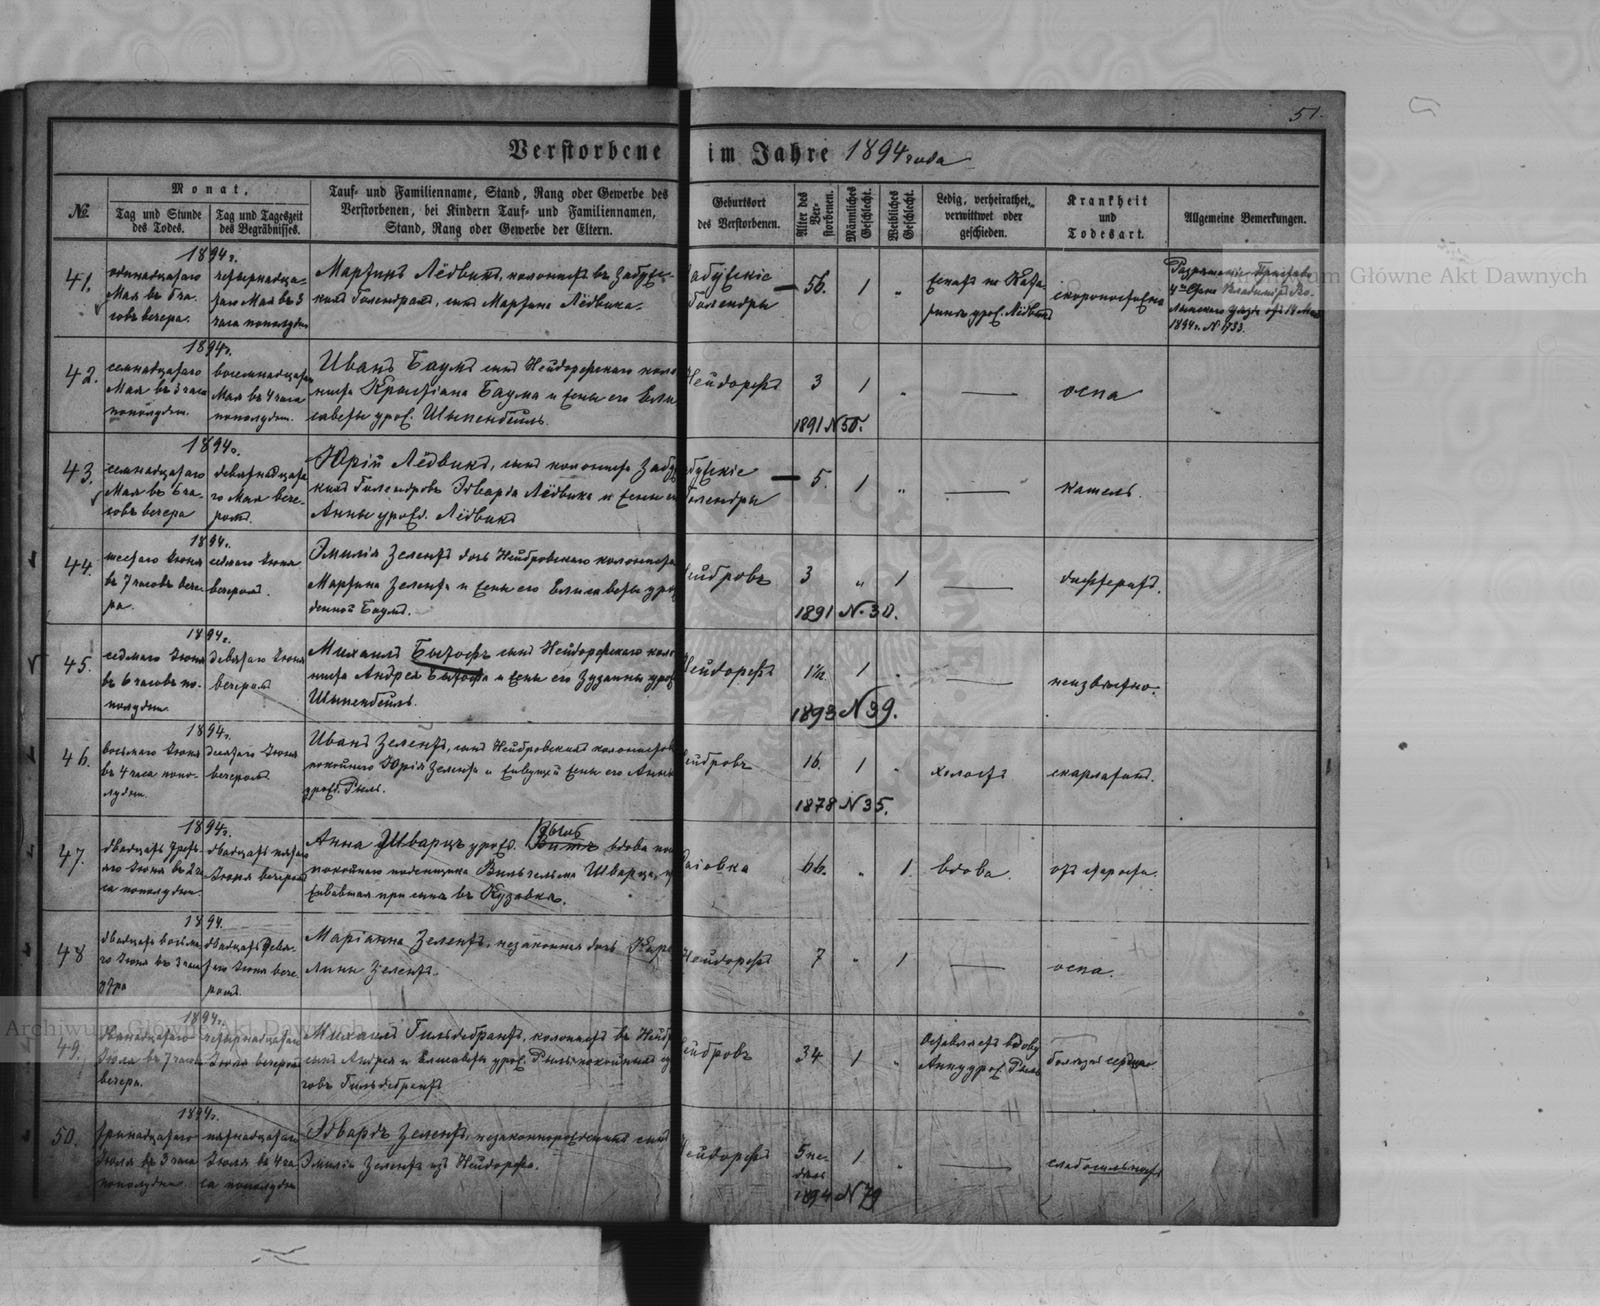 51.
Verstorbene im Jahre 1894 года
№
Monat.
Tag und Stunde
des Todes.
Tag und Tageszeit
des Begräbnisses.
Tauf- und Familienname, Stand, Rang oder Gewerbe des
Verstorbenen, bei Kindern Tauf- und Familiennamen,
Stand, Rang oder Gewerbe der Eltern.
Geburtsort
des Verstorbenen.
Alter des
Ver-
storbenen.
Männliches
Geschlecht.
Weibliches
Geschlecht.
Ledig, verheirathet,
verwittwet oder
geschieden.
Krankheit
und
Todesart.
Allgemeine Bemerkungen.
41.
1894г.
одинадцатаго
Мая въ 6 ча-
совъ вечера.
четырнадца-
таго Мая въ 3
часа пополудни
Мартинъ Лёдвихъ, колонистъ въ Забужс-
кихъ Голендрахъ, сынъ Мартина Лёдвиха.
Забужскіе
Голендры
56.
1
„
скоропостижна
1894г. №
42.
1894г.
семнадцатаго
Мая въ 3 часа
пополудни.
восемнадцатаго
Мая въ 4 часа
пополудни.
Иванъ Баумъ сынъ Нейдорфскаго коло-
ниста Крыстіана Баума и жены его Ели-
саветы урож. Шыпенбейль.
Нейдорфъ
3
1891 № 50.
1
„
оспа
43.
1894г.
семнадцатаго
Мая въ 6 ча-
совъ вечера
девятнадцата-
го Мая вече-
ромъ.
Юрій Лёдвихъ, сынъ колониста Забуж-
кихъ Голендровъ Эдварда Лёдвиха и жены его
Анны урожд. Лёдвихъ
бужскіе
Голендры
5.
1
„
кашель.
44.
1894г.
шестаго Іюня
въ 7 часовъ вече-
ра.
седмаго Іюня
вечеромъ.
Эмилія Зелентъ дочь Нейбровскаго колониста
Мартина Зелента и жены его Елисаветы урож-
денной Баумъ.
Нейбровъ
3
1891 № 30.
„
1
дифтеритъ.
45.
1894г.
седмаго Іюня
въ 6 часовъ по-
полудни
девятаго Іюня
вечеромъ
Михаилъ Бытофъ сынъ Нейдорфскаго коло-
ниста Андрея Бытофа и жены его Зузанны урож.
Шыпенбейль.
Нейдорфъ
1½
1893 № 39.
1
„
неизвѣстно.
46.
1894г.
восьмаго Іюня
въ 4 часа попо-
лудни.
десятаго Іюня
вечеромъ.
Иванъ Зелентъ, сынъ Нейбровскихъ колонистовъ
покойнаго Юрія Зелента и живущей жены его Анны
урожд. Рыль.
Нейбровъ
16.
1878 № 35.
1
„
холостъ
скарлатинъ.
47.
1894г.
двадцать треть-
яго Іюня въ 2 ча-
са пополудни
двадцать пятаго
Іюня вечеромъ
Анна Шварцъ урожд. вдова по
покойномъ поденщика Вильгельма Шварца,
жившая при сынѣ въ Кузавкѣ.
66.
„
1.
вдова.
отъ старости.
48
1894.
двадцать восьма-
го Іюня въ 3 часа
утра
двадцать девя-
таго Іюня вече-
ромъ.
Маріанна Зелентъ, незаконная дочь Каро-
лины Зелентъ.
Нейдорфъ
7
„
1
оспа.
49.
1894г.
двѣнадцатаго
Іюля въ 7 часовъ
вечера.
четырнадцатаго
Іюля вечеромъ
Михаилъ Гильдебрантъ, колонистъ въ Нейбр.
сынъ Андрея и Елисаветы урож. Рыль покойныхъ су-
говъ Гильдебрантъ
Нейбровъ
34
1
„
Оставляетъ вдову
Анну урож. Рыль
болезнь сердца
50.
1894г.
тринадцатаго
Іюля въ 3 часа
пополудни
пятнадцатаго
Іюля въ 4 ча-
са пополудни
Эдвардъ Зелентъ, незаконнорожденный сынъ
Эмиліи Зелентъ изъ Нейдорфа.
Нейдорфъ
5 не-
дель
1894 № 79
1
„
слабосильность
Archiwum Główne Akt Dawnych
Archiwum Główne Akt Dawnych